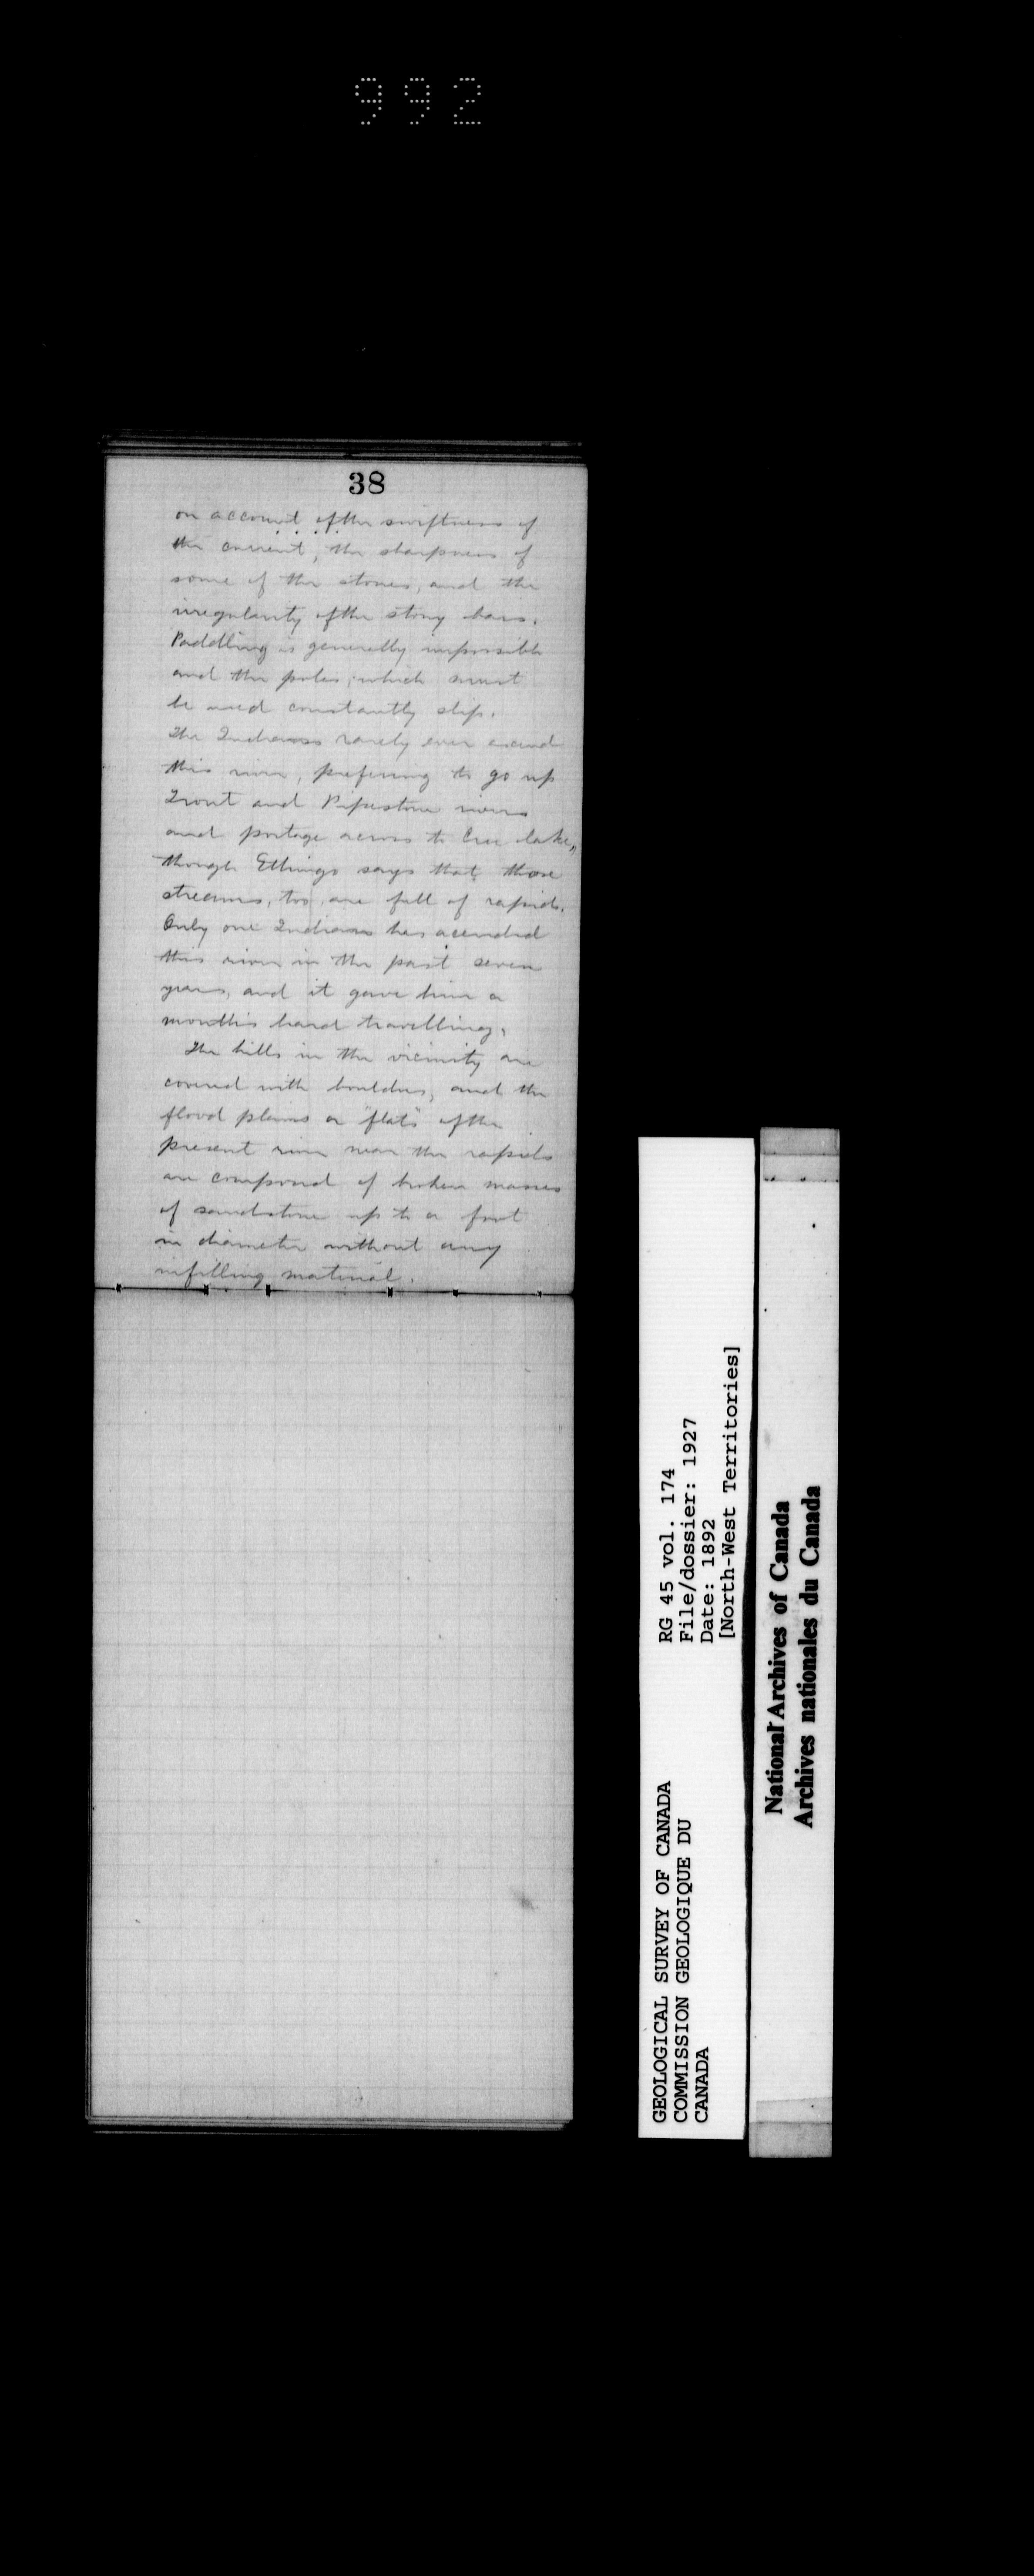 992
38
on account of the swiftness of
the current, the sharpness of
some of the stones, and the
irregularity of the stony bars.
Paddling is generally impossible
and the poles, which must
be used constantly slip.
The Indians rarely ever ascend
this river, preferring to go up
Trout and Pipestone rivers
and portage across to Cree lake,
though Ethings says that those
streams, too, are full of rapids.
Only one Indian has acended
this river in the past seven
years, and it gave him a
month's hard travelling.
The hills in the vicinity are
covered with boulders, and the
flood plains or "flats" of the
present river near the rapids
are composed of broken masses
of sandstone up to a foot
in diameter without any
infilling material.
GEOLOGICAL SURVEY OF CANADA
COMMISSION GEOLOGIQUE DU
CANADA
RG 45 vol. 174
File/dossier: 1927
Date: 1892
[North-West Territories]
National Archives of Canada
Archives nationales du Canada